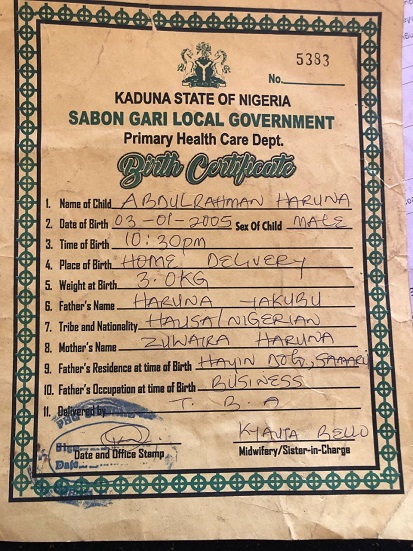 5383
No.
KADUNA STATE OF NIGERIA
SABON GARI LOCAL GOVERNMENT
Primary Health Care Dept.
Birth Certificate
1. Name of Child ABDULRAHMAN HARUNA
2. Date of Birth 03-01-2005 Sex Of Child MALE
3. Time of Birth 10:30pm
4. Place of Birth HOME DELIVERY
5. Weight at Birth 3.0KG
6. Father's Name HARUNA YAKUBU
7. Tribe and Nationality HAUSA/NIGERIAN
8. Mother's Name ZUWAIRA HARUNA
9. Father's Residence at time of Birth HAYIN DOGO, SAMARU
10. Father's Occupation at time of Birth BUSINESS
11. Delivered by T.B.A
Sign
Date
BELLO
Date and Office Stamp Midwifery/Sister-in-Charge